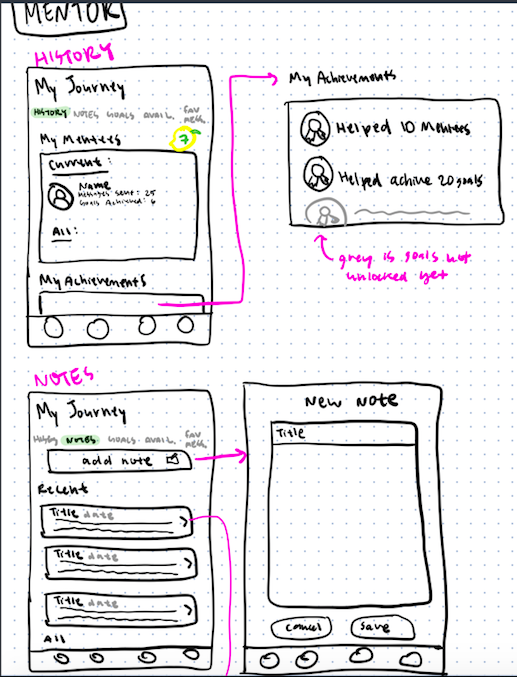 MENTOR
HISTORY
My Journey
HISTORY NOTES GOALS AVAIL. FAV MESS.
My Mentees
7
Current:
Name
Messages sent: 25
Goals Achieved: 6
All:
My Achievements
My Achievements
Helped 10 Mentees
Helped achive 20 goals
grey is goals not
unlocked yet
NOTES
My Journey
NOTES GOALS AVAIL. FAV MESS.
add note
Recent
Title date
Title date
Title date
All
New Note
Title
Cancel
Save